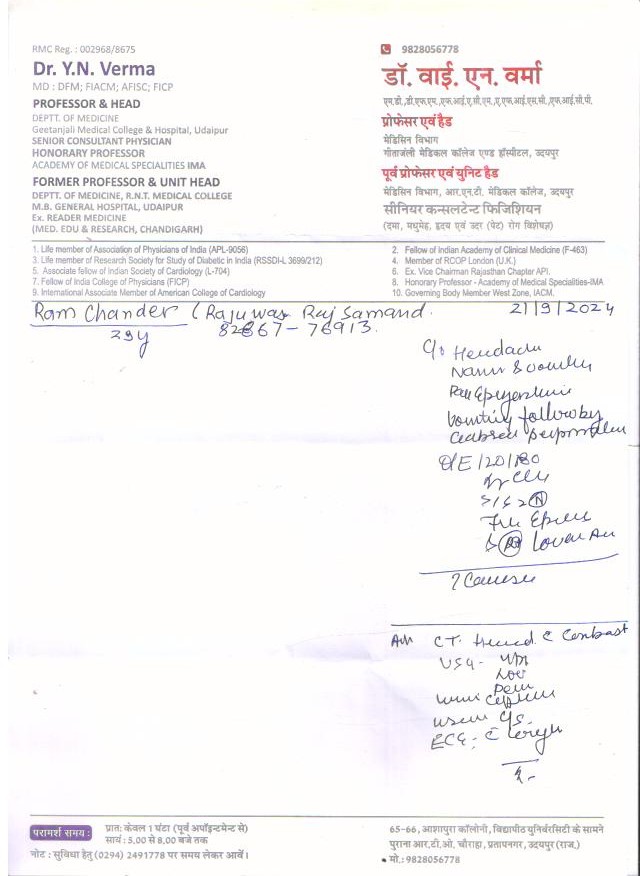 RMC Reg. : 002968/8675
Dr. Y.N. Verma
MD : DFM; FIACM; AFISC; FICP
PROFESSOR & HEAD
DEPTT. OF MEDICINE
Geetanjali Medical College & Hospital, Udaipur
SENIOR CONSULTANT PHYSICIAN
HONORARY PROFESSOR
ACADEMY OF MEDICAL SPECIALITIES IMA
FORMER PROFESSOR & UNIT HEAD
DEPTT. OF MEDICINE, R.N.T. MEDICAL COLLEGE
M.B. GENERAL HOSPITAL, UDAIPUR
Ex. READER MEDICINE
(MED. EDU & RESEARCH, CHANDIGARH)
9828056778
डॉ. वाई. एन. वर्मा
एम.डी.,डी.एफ.एम.,एफ.आई.ए.सी.एम.,ए.एफ.आई.एस.सी.,एफ.आई.सी.पी.
प्रोफेसर एवं हैड
मेडिसिन विभाग
गीतांजली मेडिकल कॉलेज एण्ड हॉस्पीटल, उदयपुर
पूर्व प्रोफेसर एवं युनिट हैड
मेडिसिन विभाग, आर.एन.टी. मेडिकल कॉलेज, उदयपुर
सीनियर कन्सलटेन्ट फिजिशियन
(दमा, मधुमेह, हृदय एवं उदर (पेट) रोग विशेषज्ञ)
1. Life member of Association of Physicians of India (APL-9056)
2. Fellow of Indian Academy of Clinical Medicine (F-463)
3. Life member of Research Society for Study of Diabetic in India (RSSDI-L 3699/212)
4. Member of RCOP London (U.K.)
5. Associate fellow of Indian Society of Cardiology (L-704)
6. Ex. Vice Chairman Rajasthan Chapter API.
7. Fellow of India College of Physicians (FICP)
8. Honorary Professor - Academy of Medical Specialities-IMA
9. International Associate Member of American College of Cardiology
10. Governing Body Member West Zone, IACM.
Ram Chander ( Rajuwas Rajsamand. 21/9/2024
29y 82867-76913.
C/o
vomiting follow by
O/E /20/180
S1 S2 N
CT. Head C Contrast
USG-
ECG-
परामर्श समय :
प्रात: केवल 1 घंटा (पूर्व अपॉइन्टमेन्ट से)
सायं : 5.00 से 8.00 बजे तक
नोट : सुविधा हेतु (0294) 2491778 पर समय लेकर आवें।
65-66, आशापुरा कॉलोनी, विद्यापीठ युनिर्वरसिटी के सामने
पुराना आर.टी.ओ. चौराहा, प्रतापनगर, उदयपुर (राज.)
मो.: 9828056778